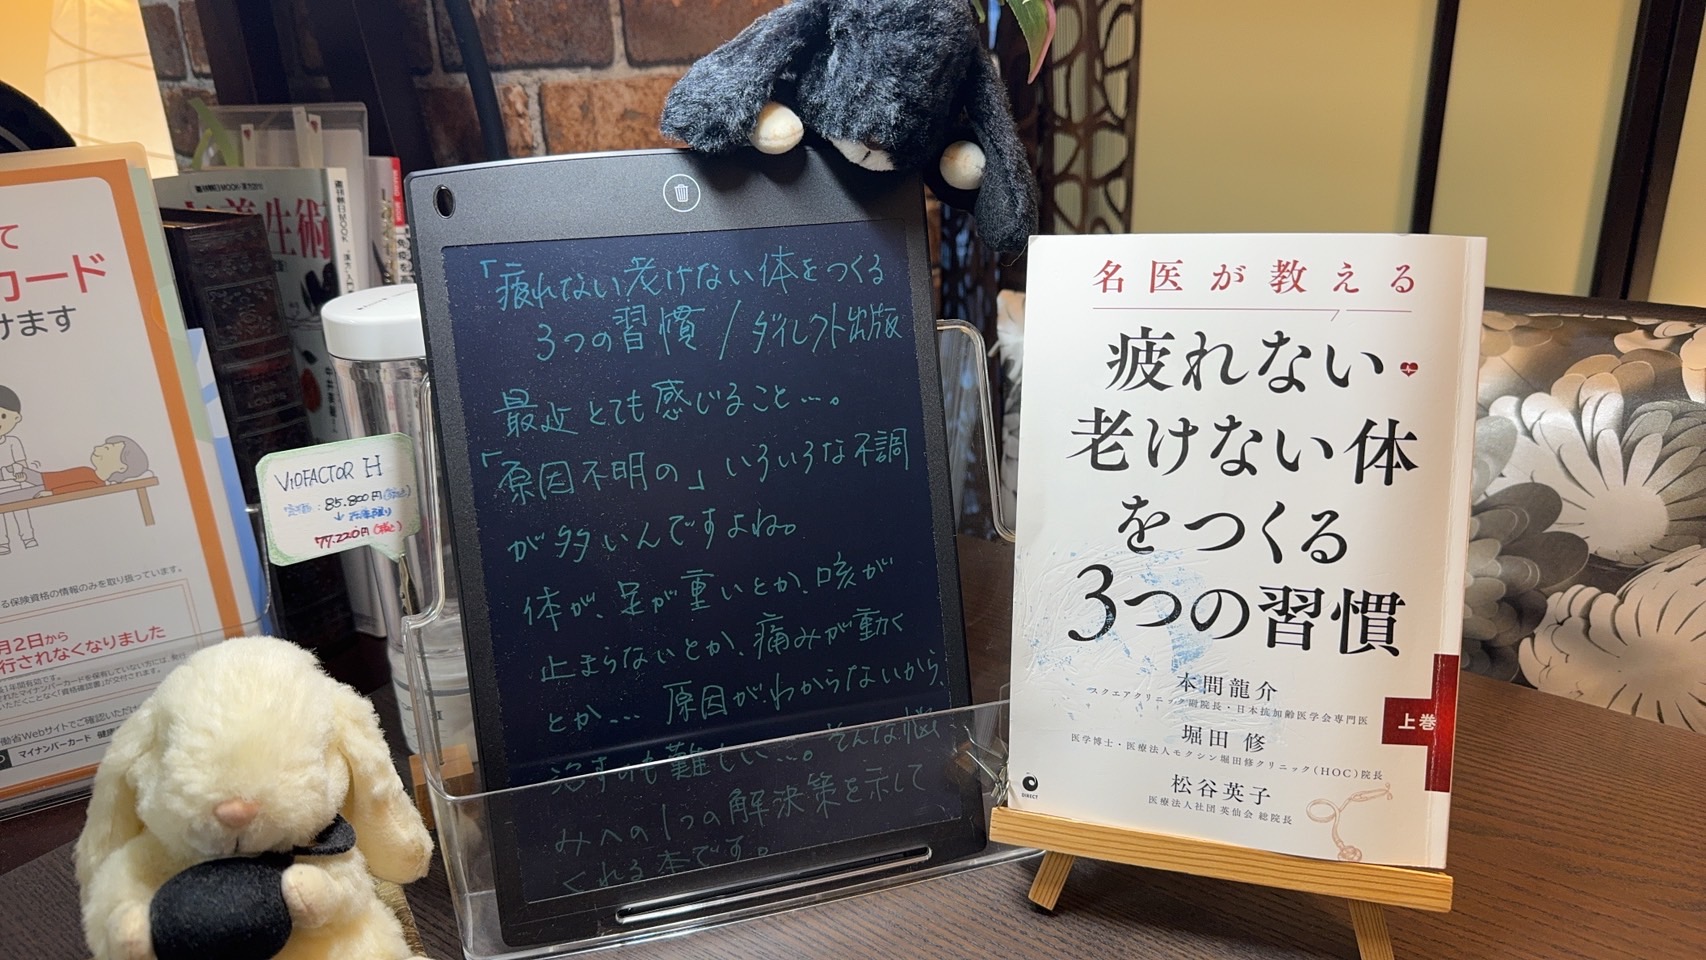 て
カード
けます
る保険資格の情報のみを取り扱っています。
月2日から
行されなくなりました
働省Webサイトでご確認いただけ
マイナンバーカード 健康
養生術
VIOFACTOR H
定価：85.800円(税込)
↓ 在庫限り
77.220円(税込)
「疲れない老けない体をつくる
3つの習慣/ダイレクト出版
最近とても感じること…。
「原因不明の」いろいろな不調
が多いんですよね。
体が、足が重いとか、咳が
止まらないとか、痛みが動く
とか… 原因がわからないから、
治すのも難しい…。そんな悩
みへの1つの解決策を示して
くれる本です。
名医が教える
疲れない
老けない体
をつくる
3つの習慣
本間龍介
スクエアクリニック副院長・日本抗加齢医学会専門医
堀田 修
医学博士・医療法人モクシン堀田修クリニック(HOC)院長
松谷英子
医療法人社団 英仙会 総院長
上巻
DIRECT